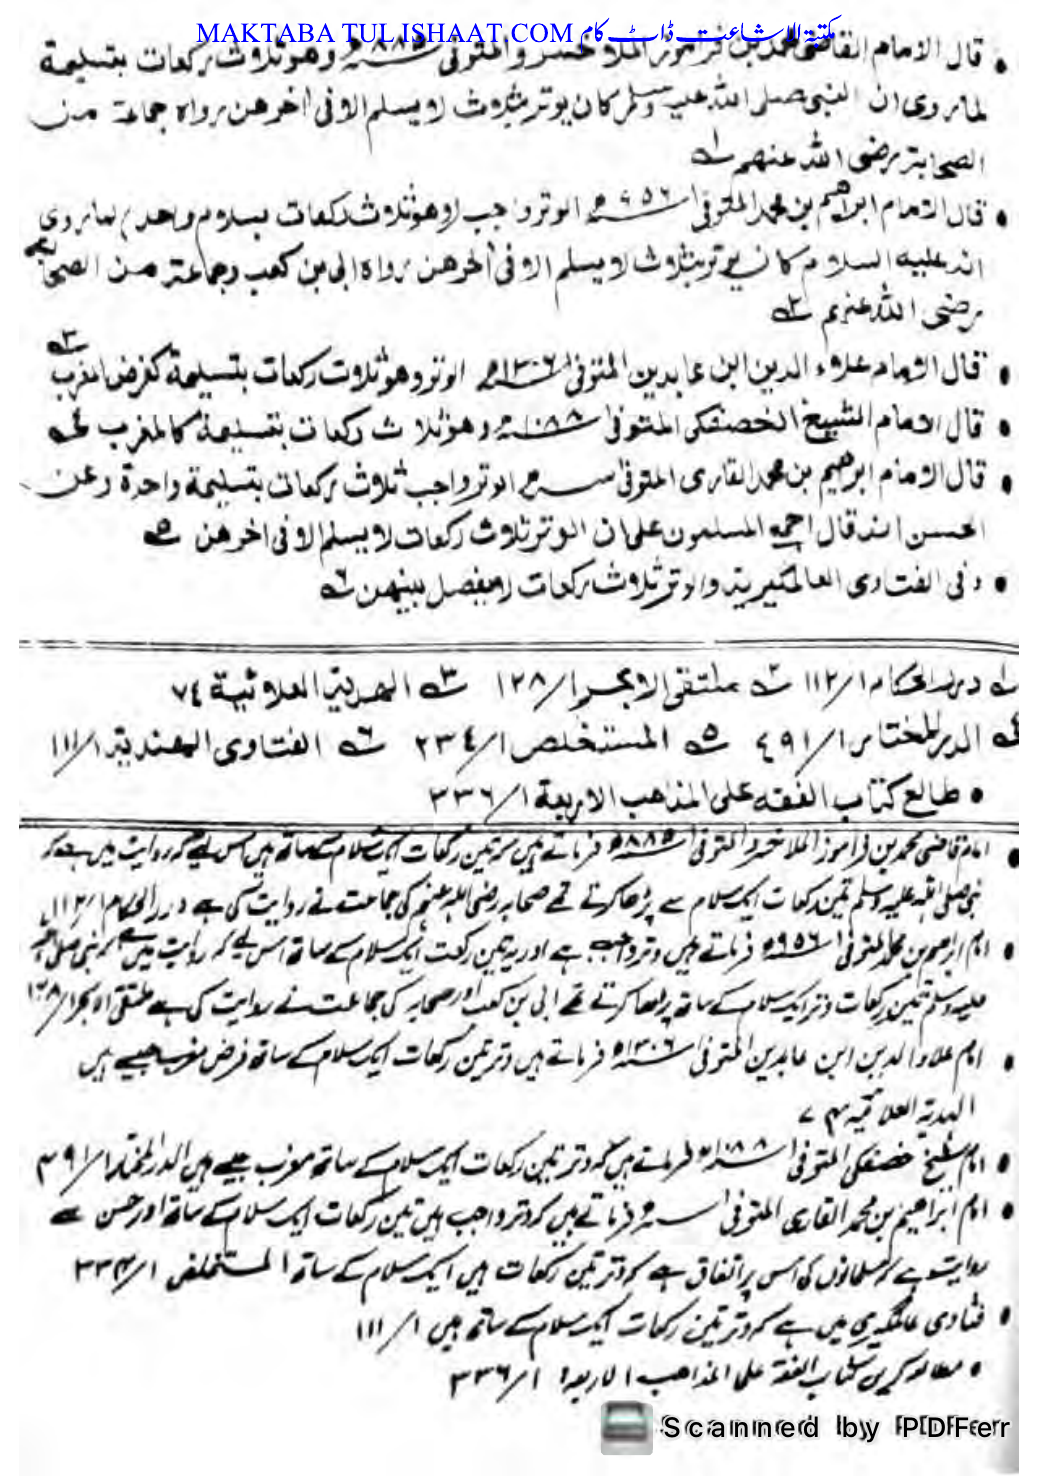 MAKTABA TUL ISHAAT.COM مکتبة الاشاعت ڈاٹ کام
• قال الامام القاضى محمد بن فرموز الملا خسرو المتوفى ٨٨٥ﮪ وهو ثلاث ركعات بتسليمة
لما روى ان النبى صلى الله عليه وسلم كان يوتر بثلاث لا يسلم الا فى اخرهن رواه جماعة من
الصحابة رضى الله عنهم ١
• قال الامام ابراهيم بن محمد المتوفى ٩٥٦ﮪ الوتر واجب وهو ثلاث ركعات بسلام واحد لما روى
انه عليه السلام كان يوتر بثلاث لا يسلم الا فى اخرهن رواه ابى بن كعب وجماعة من الصحابة
رضى الله عنهم ٢
• قال الامام علاء الدين ابن عابدين المتوفى ١٣٠٦ﮪ الوتر وهو ثلاث ركعات بتسليمة كفرض المغرب ٣
• قال الامام الشيخ الخصفكى المتوفى ١٠٨٨ﮪ وهو ثلاث ركعات بتسليمة كالمغرب ٤
• قال الامام ابرهيم بن محمد القارى المتوفى ســـﮪ الوتر واجب ثلاث ركعات بتسليمة واحدة وعن
الحسن انه قال اجمع المسلمون على ان الوتر ثلاث ركعات لا يسلم الا فى اخرهن ٥
• وفى الفتاوى العالمكيرية والوتر ثلاث ركعات لا يفصل بينهن ٦
١ درر الحكام ١/١١٢ ٢ ملتقى الابحر ١/١٢٨ ٣ الهدية العلائية ٧٤
٤ الدر المختار ١/٤٩١ ٥ المستخلص ١/٢٣٤ ٦ الفتاوى الهندية ١/١١١
• طالع كتاب الفقه على المذاهب الاربعة ١/٣٣٦
• امام قاضی محمد بن فراموز الملا خسرو المتوفی ٨٨٥ﮪ فرماتے ہیں تین رکعات ایک سلام کے ساتھ ہیں اس لیے کہ روایت میں ہے کہ
نبی صلی اللہ علیہ وسلم تین رکعات ایک سلام سے پڑھا کرتے تھے صحابہ رضی اللہ عنہم کی جماعت نے روایت کی ہے درر الحکام ١/١١٢
• امام ابراهیم بن محمد المتوفی ٩٥٦ﮪ فرماتے ہیں وتر واجب ہے اور یہ تین رکعت ایک سلام کے ساتھ اس لیے کہ روایت میں ہے کہ نبی صلی اللہ
علیہ وسلم تین رکعات وتر ایک سلام کے ساتھ پڑھا کرتے تھے ابی بن کعب اور صحابہ کی جماعت نے روایت کی ہے ملتقی الابحر ١/١٢٨
• امام علاء الدین ابن عابدین المتوفی ١٣٠٦ﮪ فرماتے ہیں وتر تین رکعات ایک سلام کے ساتھ فرض مغرب جیسے ہیں
الہدیة العلائیة ٧٤
• امام شیخ خصفکی المتوفی ١٠٨٨ﮪ فرماتے ہیں کہ وتر تین رکعات ایک سلام کے ساتھ مغرب جیسے ہیں الدر المختار ١/٤٩١
• امام ابراهیم بن محمد القاری المتوفی ســـﮪ فرماتے ہیں کہ وتر واجب ہیں تین رکعات ایک سلام کے ساتھ اور حسن سے
روایت ہے کہ مسلمانوں کی اس پر اتفاق ہے کہ وتر تین رکعات ہیں ایک سلام کے ساتھ المستخلص ١/٢٣٤
• فتاوی عالمگیری میں ہے کہ وتر تین رکعات ایک سلام کے ساتھ ہیں ١/١١١
• مطالعہ کریں کتاب الفقہ علی المذاهب الاربعة ١/٣٣٦
Scanned by PDFer